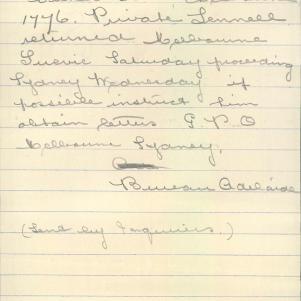 1776. Private Fennell
returned Melbourne
Suevic Saturday proceeding
Sydney Wednesday if
possible instruct him
obtain letters G.P.O
Melbourne Sydney.
Bureau Adelaide
(Send by Enquiries.)